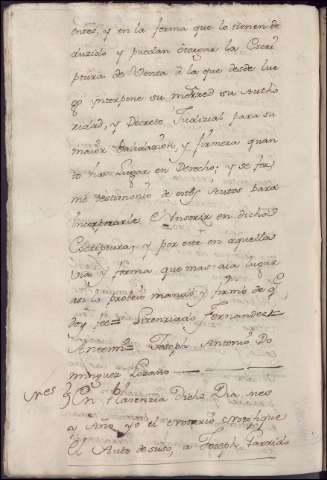 entes, y en la forma que lo tienen de
duzido, y puedan otorgar la Escri
ptura de Venta â la que desde lue
g.º interpone su merced su Autho
ridad, y Decreto Judizial para su
maior balidazion, y firmeza quan
to ha lugar en Derecho; y se for
me testimonio de estos Autos para
Incorporarle è Insertar en dicha
Escriptura; y por este en aquella
via y forma que mas aia lugar
asi lo proveió mandó y firmó de q.
doy fee= Lizenziado Fernandez=
Antemi= Joseph Antonio Do
minguez Lozano
Nes
En Plasenzia Dicho Dia mes
y Año yo el Notario Notifique
el Auto de suso, a Joseph Garrido